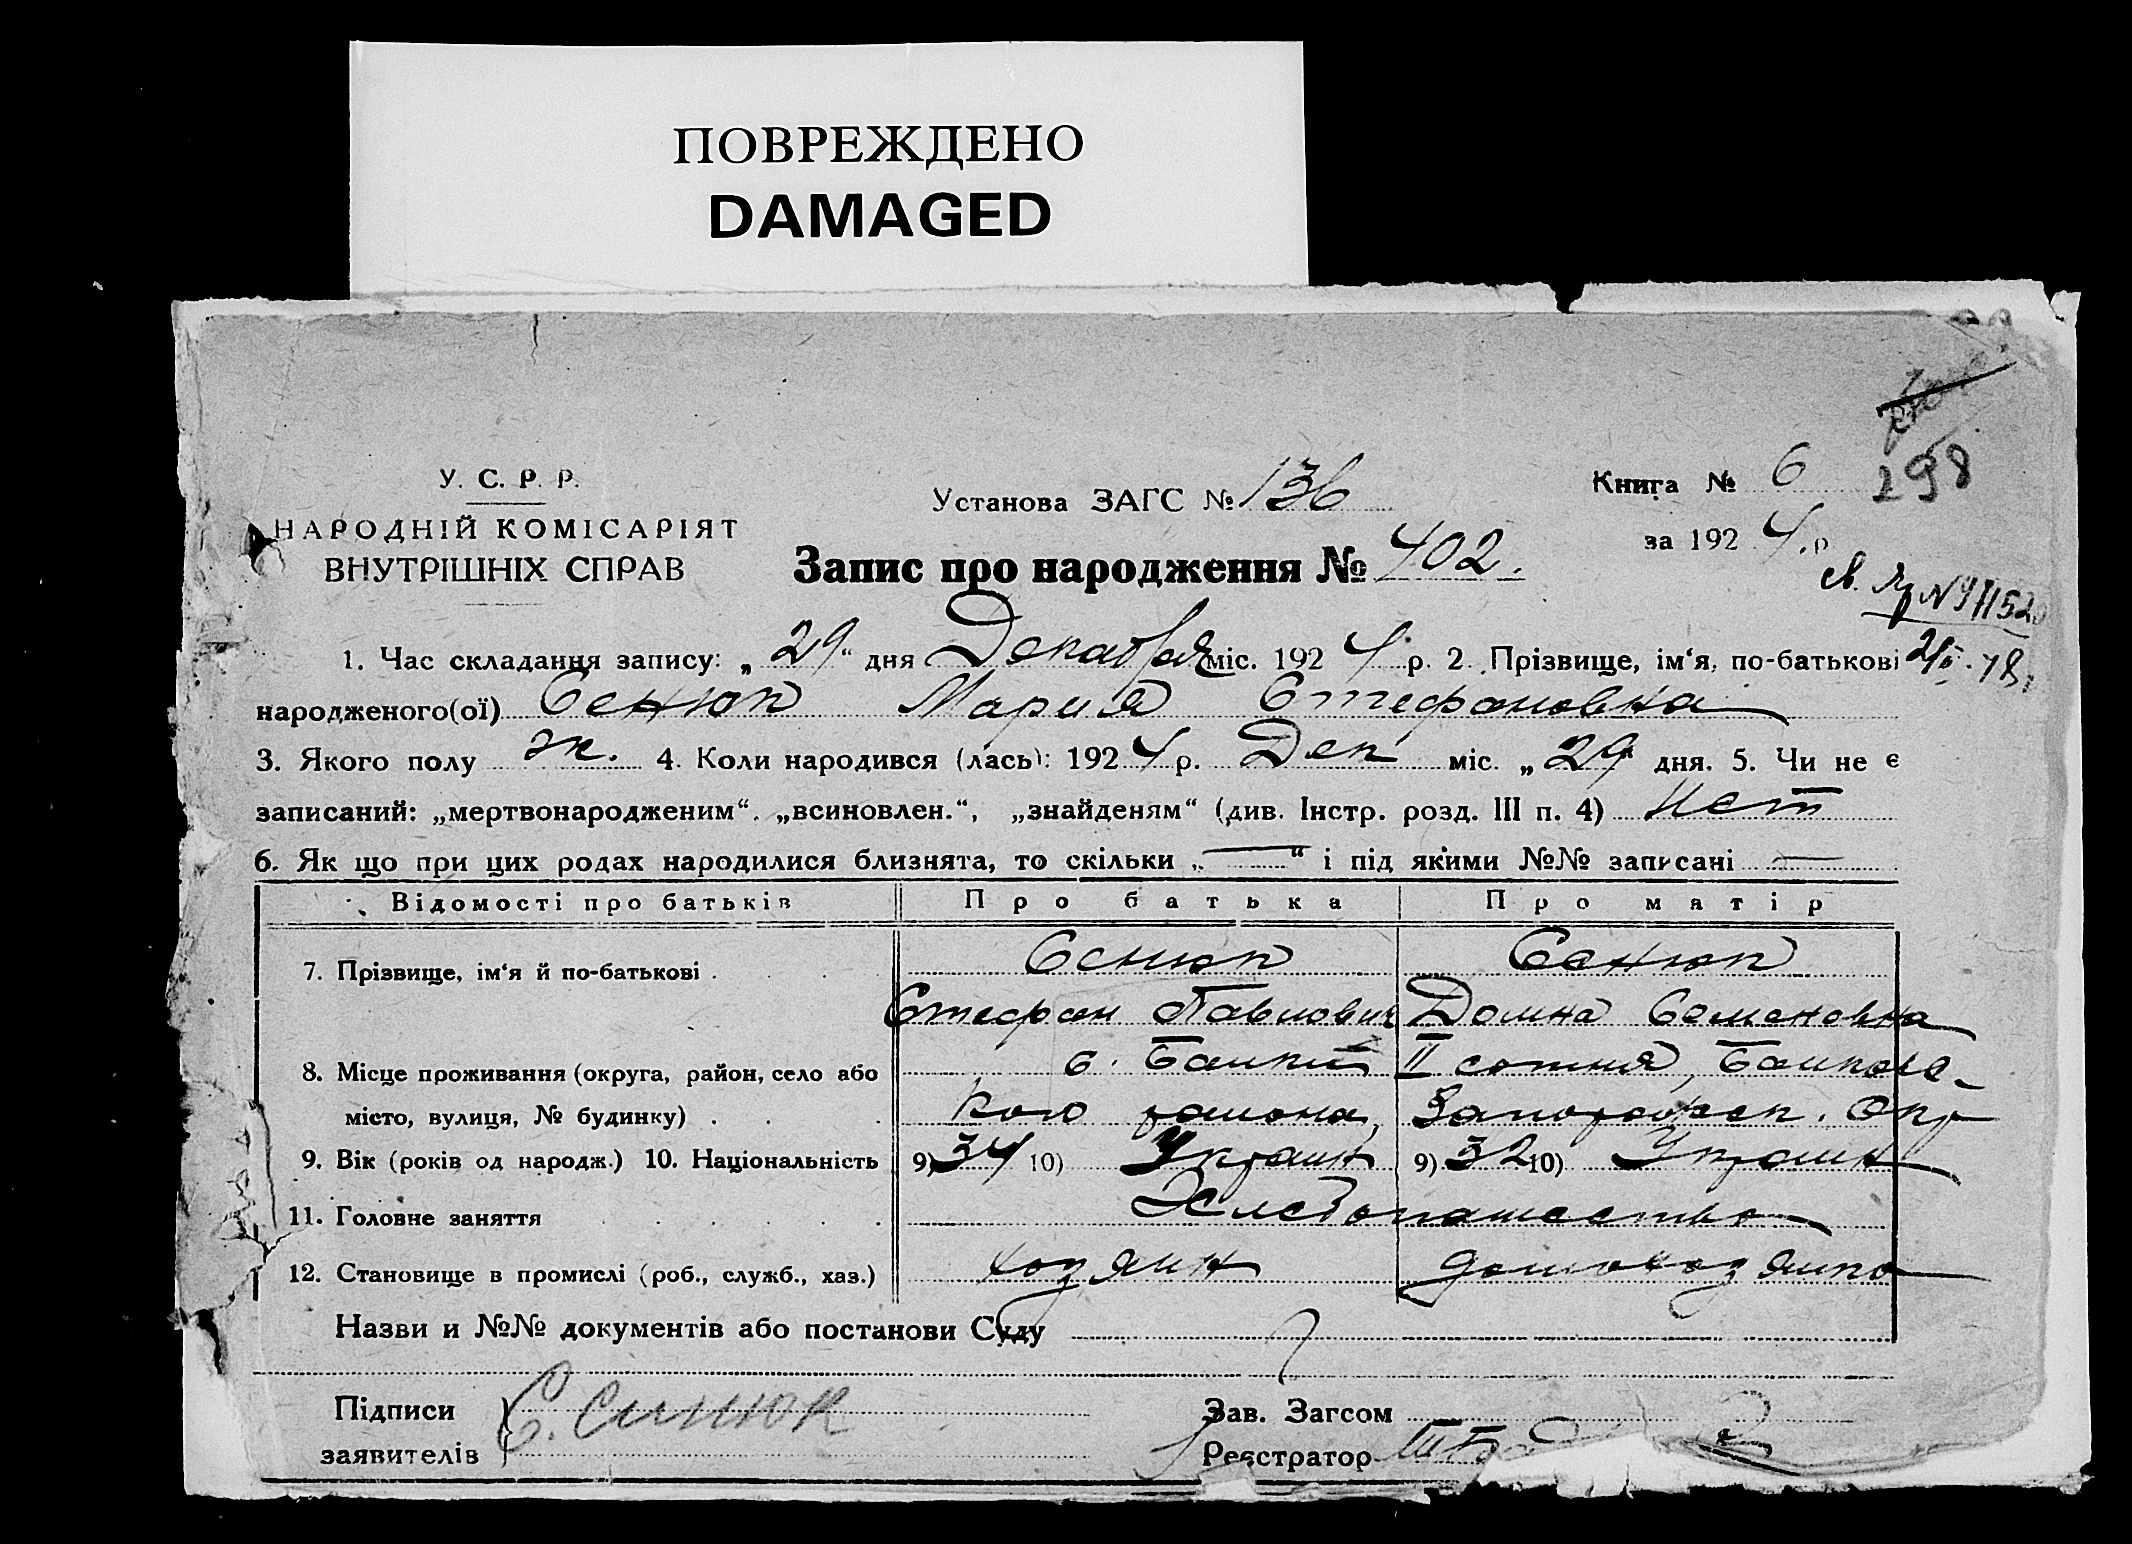 ПОВРЕЖДЕНО
DAMAGED
298
У. С. Р. Р.
НАРОДНІЙ КОМІСАРІЯТ
ВНУТРІШНІХ СПРАВ
Установа ЗАГС № 136
Книга № 6
за 1924.р
Запис про народження № 402.
1. Час складання запису: „29“ дня Декабря міс. 1924 р. 2. Прізвище, ім‘я, по-батькові
народженого(ої) Сенюк Мария Стефановна
3. Якого полу ж. 4. Коли народився (лась): 1924 р. Дек міс. „29 дня. 5. Чи не є
записаний: „мертвонародженим“. „всиновлен.“, „знайденям“ (див. Інстр. розд. III п. 4) Нет
6. Як що при цих родах народилися близнята, то скільки „—“ і під якими №№ записані —
Відомості про батьків Про батька Про матір
7. Прізвище, ім‘я й по-батькові . Сенюк Сенюк
Стефан Павлович Домна Семеновна
8. Місце проживання (округа, район, село або с. Балки II сотня, Балковс-
місто, вулиця, № будинку) . кого района, Запорожск. Окр
9. Вік (років од народж.) 10. Національність 9) 34 10) Украин 9) 32 10) Украин
11. Головне заняття Хлебопашество
12. Становище в промислі (роб., служб., хаз.) хозяин домохозяйка
Назви и №№ документів або постанови Суду
Підписи
заявителів
С. Синюк
Зав. Загсом
Реєстратор